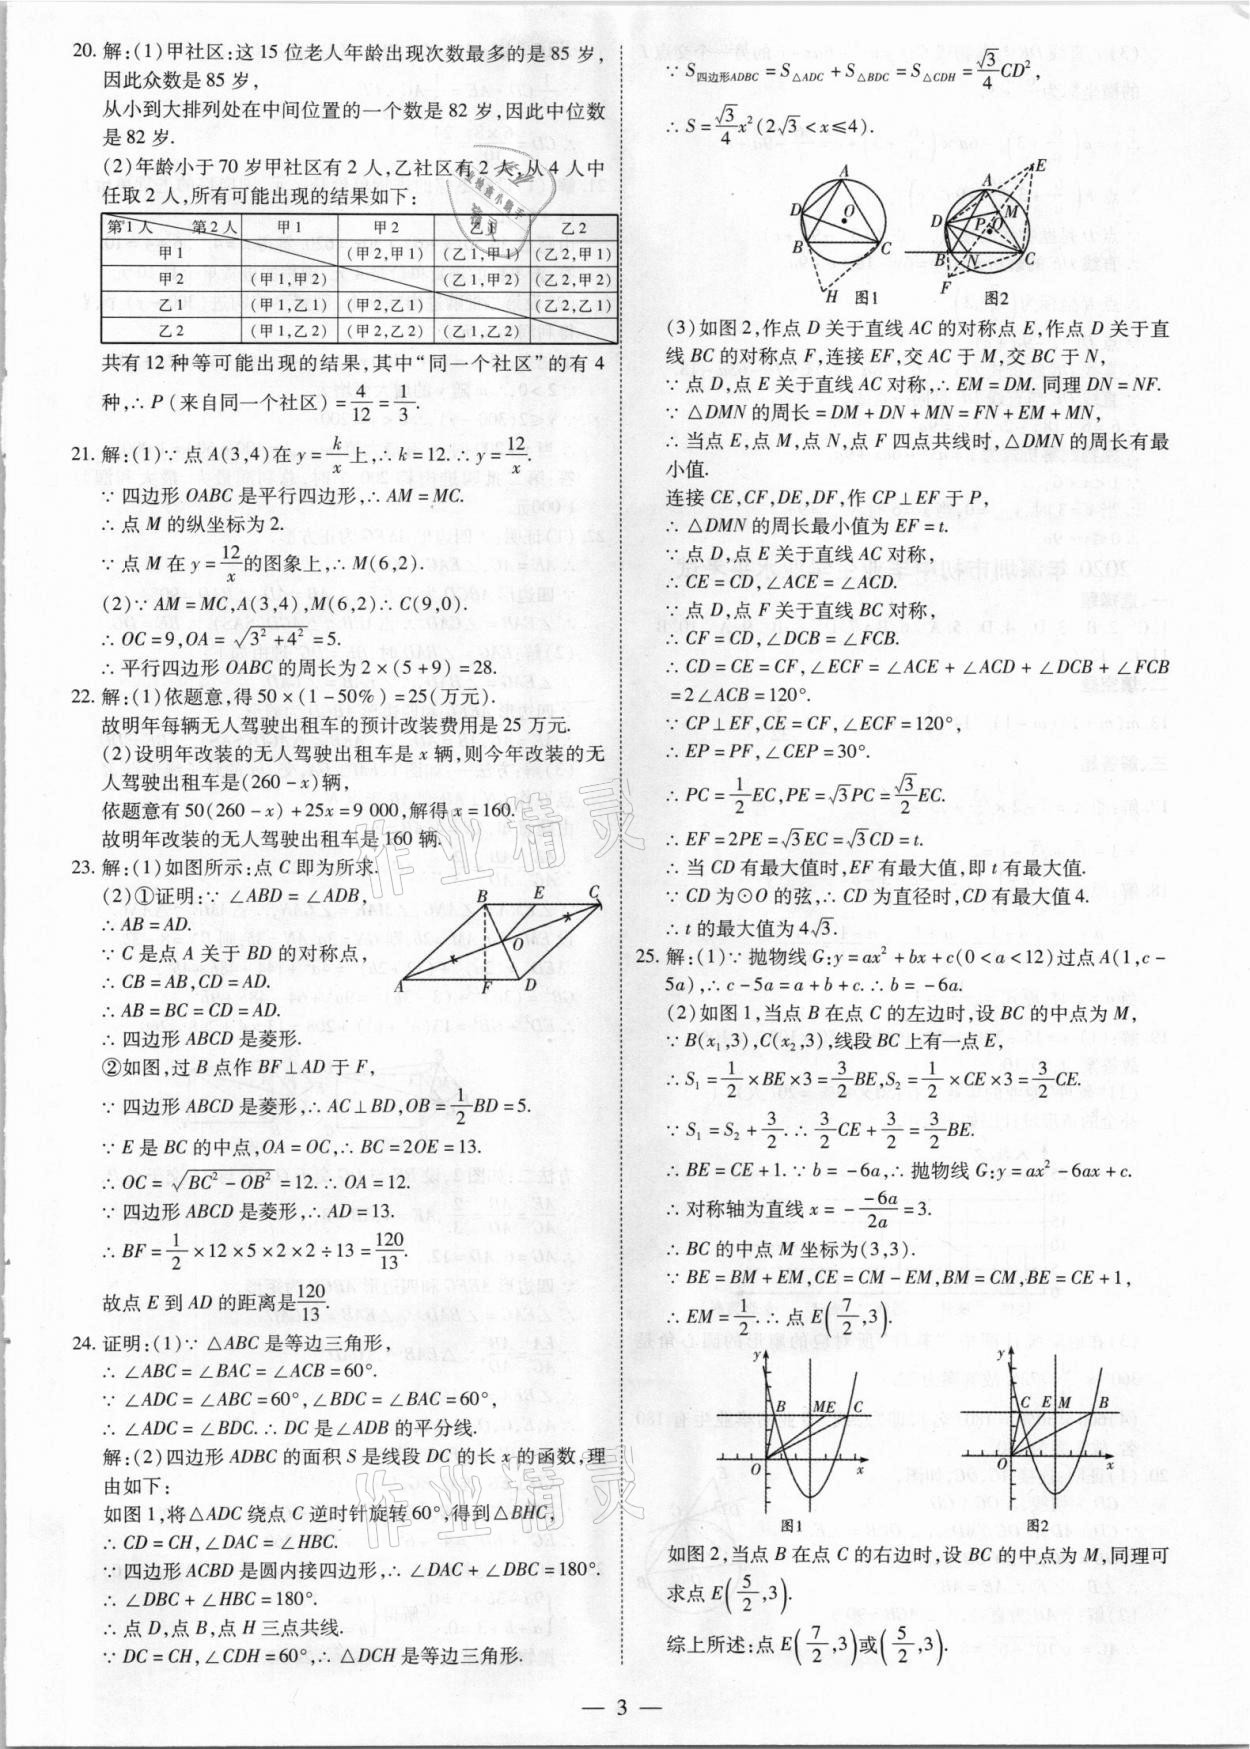 20. 解:(1)甲社区:这 15 位老人年龄出现次数最多的是 85 岁,
因此众数是 85 岁,
从小到大排列处在中间位置的一个数是 82 岁,因此中位数
是 82 岁.
(2)年龄小于 70 岁甲社区有 2 人,乙社区有 2 人,从 4 人中
任取 2 人,所有可能出现的结果如下:
第1人 第2人 甲1 甲2 乙1 乙2
甲1 (甲2,甲1) (乙1,甲1) (乙2,甲1)
甲2 (甲1,甲2) (乙1,甲2) (乙2,甲2)
乙1 (甲1,乙1) (甲2,乙1) (乙2,乙1)
乙2 (甲1,乙2) (甲2,乙2) (乙1,乙2)
共有 12 种等可能出现的结果,其中“同一个社区”的有 4
种,∴ P (来自同一个社区) = 4/12 = 1/3.
21. 解:(1)∵ 点 A(3,4)在 y = k/x 上,∴ k = 12. ∴ y = 12/x.
∵ 四边形 OABC 是平行四边形,∴ AM = MC.
∴ 点 M 的纵坐标为 2.
∵ 点 M 在 y = 12/x 的图象上,∴ M(6,2).
(2)∵ AM = MC,A(3,4),M(6,2)∴ C(9,0).
∴ OC = 9,OA = √(3² + 4²) = 5.
∴ 平行四边形 OABC 的周长为 2 × (5 + 9) = 28.
22. 解:(1)依题意,得 50 × (1 - 50%) = 25(万元).
故明年每辆无人驾驶出租车的预计改装费用是 25 万元.
(2)设明年改装的无人驾驶出租车是 x 辆,则今年改装的无
人驾驶出租车是(260 - x)辆,
依题意有 50(260 - x) + 25x = 9 000,解得 x = 160.
故明年改装的无人驾驶出租车是 160 辆.
23. 解:(1)如图所示:点 C 即为所求.
(2)①证明:∵ ∠ABD = ∠ADB,
∴ AB = AD.
∵ C 是点 A 关于 BD 的对称点,
∴ CB = AB,CD = AD.
∴ AB = BC = CD = AD.
∴ 四边形 ABCD 是菱形.
B E C
O
A F D
②如图,过 B 点作 BF⊥AD 于 F,
∵ 四边形 ABCD 是菱形,∴ AC⊥BD,OB = 1/2 BD = 5.
∵ E 是 BC 的中点,OA = OC,∴ BC = 2OE = 13.
∴ OC = √(BC² - OB²) = 12. ∴ OA = 12.
∵ 四边形 ABCD 是菱形,∴ AD = 13.
∴ BF = 1/2 × 12 × 5 × 2 × 2 ÷ 13 = 120/13.
故点 E 到 AD 的距离是 120/13.
24. 证明:(1)∵ △ABC 是等边三角形,
∴ ∠ABC = ∠BAC = ∠ACB = 60°.
∵ ∠ADC = ∠ABC = 60°,∠BDC = ∠BAC = 60°,
∴ ∠ADC = ∠BDC. ∴ DC 是∠ADB 的平分线.
解:(2)四边形 ADBC 的面积 S 是线段 DC 的长 x 的函数,理
由如下:
如图 1,将△ADC 绕点 C 逆时针旋转 60°,得到△BHC,
∴ CD = CH,∠DAC = ∠HBC.
∵ 四边形 ACBD 是圆内接四边形,∴ ∠DAC + ∠DBC = 180°.
∴ ∠DBC + ∠HBC = 180°.
∴ 点 D,点 B,点 H 三点共线.
∵ DC = CH,∠CDH = 60°,∴ △DCH 是等边三角形.
∵ S四边形ADBC = S△ADC + S△BDC = S△CDH = √3/4 CD²,
∴ S = √3/4 x²(2√3 < x ≤ 4).
A D O B C H 图1
E A M D P O B N C F 图2
(3)如图 2,作点 D 关于直线 AC 的对称点 E,作点 D 关于直
线 BC 的对称点 F,连接 EF,交 AC 于 M,交 BC 于 N,
∵ 点 D,点 E 关于直线 AC 对称,∴ EM = DM. 同理 DN = NF.
∵ △DMN 的周长 = DM + DN + MN = FN + EM + MN,
∴ 当点 E,点 M,点 N,点 F 四点共线时,△DMN 的周长有最
小值.
连接 CE,CF,DE,DF,作 CP⊥EF 于 P,
∴ △DMN 的周长最小值为 EF = t.
∵ 点 D,点 E 关于直线 AC 对称,
∴ CE = CD,∠ACE = ∠ACD.
∵ 点 D,点 F 关于直线 BC 对称,
∴ CF = CD,∠DCB = ∠FCB.
∴ CD = CE = CF,∠ECF = ∠ACE + ∠ACD + ∠DCB + ∠FCB
= 2∠ACB = 120°.
∵ CP⊥EF,CE = CF,∠ECF = 120°,
∴ EP = PF,∠CEP = 30°.
∴ PC = 1/2 EC,PE = √3PC = √3/2 EC.
∴ EF = 2PE = √3EC = √3CD = t.
∴ 当 CD 有最大值时,EF 有最大值,即 t 有最大值.
∵ CD 为⊙O 的弦,∴ CD 为直径时,CD 有最大值 4.
∴ t 的最大值为 4√3.
25. 解:(1)∵ 抛物线 G:y = ax² + bx + c(0 < a < 12)过点 A(1,c -
5a),∴ c - 5a = a + b + c. ∴ b = - 6a.
(2)如图 1,当点 B 在点 C 的左边时,设 BC 的中点为 M,
∵ B(x₁,3),C(x₂,3),线段 BC 上有一点 E,
∴ S₁ = 1/2 × BE × 3 = 3/2 BE,S₂ = 1/2 × CE × 3 = 3/2 CE.
∵ S₁ = S₂ + 3/2. ∴ 3/2 CE + 3/2 = 3/2 BE.
∴ BE = CE + 1. ∵ b = - 6a,∴ 抛物线 G:y = ax² - 6ax + c.
∴ 对称轴为直线 x = - -6a/2a = 3.
∴ BC 的中点 M 坐标为(3,3).
∵ BE = BM + EM,CE = CM - EM,BM = CM,BE = CE + 1,
∴ EM = 1/2. ∴ 点 E(7/2,3).
y B M E C O x 图1
y C E M B O x 图2
如图 2,当点 B 在点 C 的右边时,设 BC 的中点为 M,同理可
求点 E(5/2,3).
综上所述:点 E(7/2,3)或(5/2,3).
— 3 —
作业精灵
作业精灵